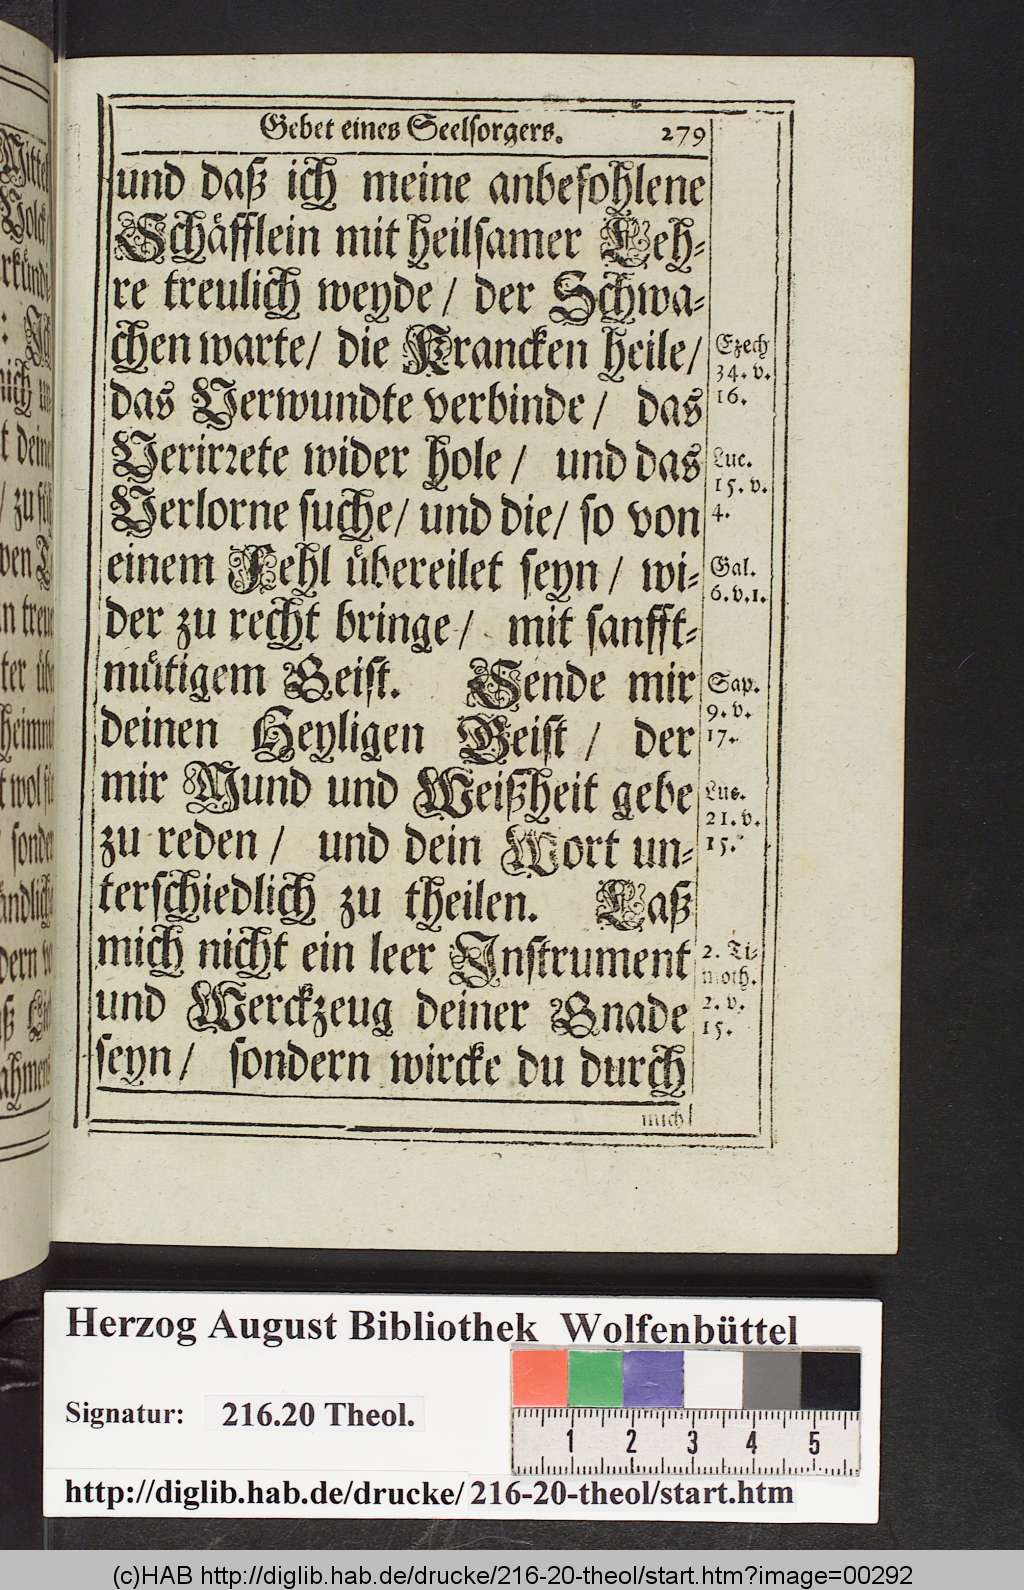 Gebet eines Seelsorgers. 279
und daß ich meine anbefohlene
Schäfflein mit heilsamer Leh-
re treulich weyde / der Schwa-
chen warte / die Krancken heile /
das Verwundte verbinde / das
Verirrete wider hole / und das
Verlorne suche / und die / so von
einem Fehl übereilet seyn / wi-
der zu recht bringe / mit sanfft-
mütigem Geist. Sende mir
deinen Heyligen Geist / der
mir Mund und Weißheit gebe
zu reden / und dein Wort un-
terschiedlich zu theilen. Laß
mich nicht ein leer Instrument
und Werckzeug deiner Gnade
seyn / sondern wircke du durch
mich
Ezech
34. v.
16.
Luc.
15. v.
4.
Gal.
6. v. 1.
Sap.
9. v.
17.
Luc.
21. v.
15.
2. Ti-
moth.
2. v.
15.
Herzog August Bibliothek Wolfenbüttel
Signatur: 216.20 Theol.
1 2 3 4 5
http://diglib.hab.de/drucke/216-20-theol/start.htm
(c)HAB http://diglib.hab.de/drucke/216-20-theol/start.htm?image=00292